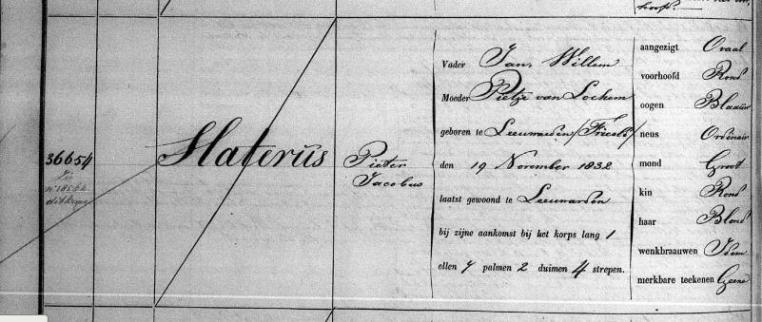 36654
Slaterus
Pieter
Jacobus
Vader Jan Willem
Moeder Pietje van Lochem
geboren te Leeuwarden /Friesld/
den 19 November 1832
laatst gewoond te Leeuwarden
bij zijne aankomst bij het korps lang 1
ellen 7 palmen 2 duimen 4 strepen.
aangezigt Ovaal
voorhoofd Rond
oogen Blaauw
neus Ordinair
mond Groot
kin Rond
haar Blond
wenkbraauwen Idem
merkbare teekenen Geene